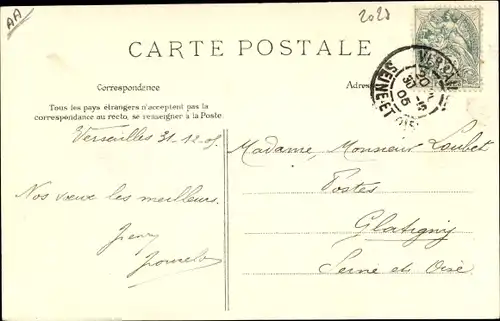 AA
2028
CARTE POSTALE
Correspondance
Tous les pays étrangers n'acceptent pas la
correspondance au recto, se renseigner à la Poste
Versailles 31-12-05
Nos vœux les meilleurs.
Adres
SEINE-ET-OISE
Madame, Monsieur Loubet
Postes
Glatigny
Seine et Oise